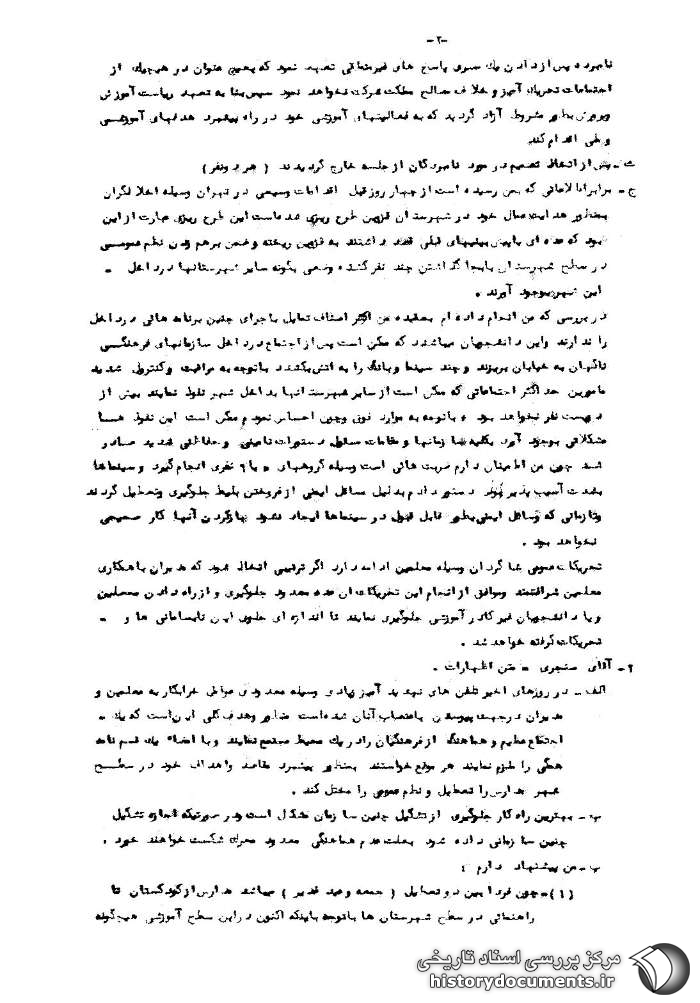 -۲-
نامبرده پس از دادن یک سری پاسخ های غیرمنطقی تعهد نمود که بهیچ عنوان در هیچیک از
اجتماعات تحریک آمیز و خلاف مصالح مملکت شرکت نخواهد نمود سپس بنا به تعهد ریاست آموزش
وپرورش بطور مشروط آزاد گردید که به فعالیتهای آموزشی خود در راه پیشبرد هدفهای آموزشی
و ملی اقدام کند.
ث - پس از اتخاذ تصمیم در مورد نامبردگان از جلسه خارج گردیدند ( هر دو نفر )
ج - برابر اطلاعاتی که بمن رسیده است از چهار روز قبل اقدامات وسیعی در تهران وسیله اخلالگران
بمنظور هدایت عمال خود در شهرستان قزوین طرح ریزی شده است این طرح ریزی عبارت از این
بود که عده ای با پیش بینیهای قبلی قصد داشتند به قزوین ریخته و ضمن برهم زدن نظم عمومی
در سطح شهرستان با بجا گذاشتن چند نفر کشته وضعی بگونه سایر شهرستانها در داخل -
این شهر بوجود آورند .
در بررسی که من انجام داده ام بعقیده من اکثر اصناف تمایل با جرای چنین برنامه هائی در داخل
را ندارند واین دانشجویان میباشند که ممکن است پس از اجتماع در داخل سازمانهای فرهنگی
ناگهان به خیابان بریزند و چند سینما و بانک را به آتش بکشند با توجه به مراقبت و کنترل شدید
مامورین حداکثر اجتماعاتی که ممکن است از سایر شهرستانها بداخل شهر نفوذ نمایند بیش از
دویست نفر نخواهد بود . با توجه به موارد فوق و چون احساس نمودم ممکن است این نفوذ همسا
مشکلاتی بوجود آورد بکلیه سازمانها و مقامات مسئول دستورات تامینی و حفاظتی شدید صادر
شد چون من اطمینان دارم ضربت هائی است وسیله گروههای ۵ یا ۶ نفری انجام گیرد و سینماها
بشدت آسیب پذیر بودند دستور دادم بدلیل مسائل ایمنی از فروختن بلیط جلوگیری وتعطیل گردند
وتا زمانی که وسائل ایمنی بطور قابل قبول در سینماها ایجاد نشود بازکردن آنها کار صحیحی
نخواهد بود .
تحریکات عمومی شاگردان وسیله معلمین ادامه دارد اگر ترتیبی اتخاذ شود که مدیران با همکاری
معلمین شرافتمند وموافق از انجام این تحریکات آن عده معدود جلوگیری و از راه دادن معلمین
و یا دانشجویان غیر کادر آموزشی جلوگیری نمایند تا اندازه ای جلوی این نابسامانی ها و -
تحریکات گرفته خواهد شد .
۲ - آقای سنجری - متن اظهارات .
الف - در روزهای اخیر تلفن های تهدید آمیز زیادی وسیله معدودی عوامل خرابکار به معلمین و
مدیران در جهت پیوستن باعتصاب آنان شده است منظور وهدف کلی این است که یک -
اجتماع عظیم و هماهنگ از فرهنگیان را در یک محیط مجتمع نمایند و با امضاء یک قسم نامه
همگی را ملزم نمایند هر موقع خواستند بمنظور پیشبرد مقاصد واهداف خود در سطح
شهر مدارس را تعطیل و نظم عمومی را مختل کند .
ب - بهترین راه کار جلوگیری از تشکیل چنین سازمان متشکل است ودر صورتیکه اجازه تشکیل
چنین سازمانی داده نشود بعلت عدم هماهنگی معدود محرک شکست خواهند خورد .
پ - من پیشنهاد دارم :
(۱) - چون فردا بین دو تعطیل ( جمعه و عید غدیر ) میباشد مدارس از کودکستان تا
راهنمائی در سطح شهرستان ها با توجه باینکه اکنون در این سطح آموزشی هیچگونه
مرکز بررسی اسناد تاریخی
historydocuments.ir